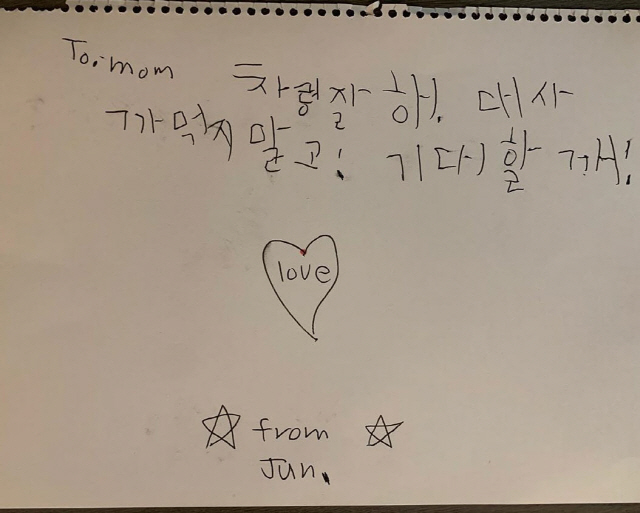 To. mom 차령잘 해. 대사
까먹지 말고! 기다할 게!
love
from
Jun.